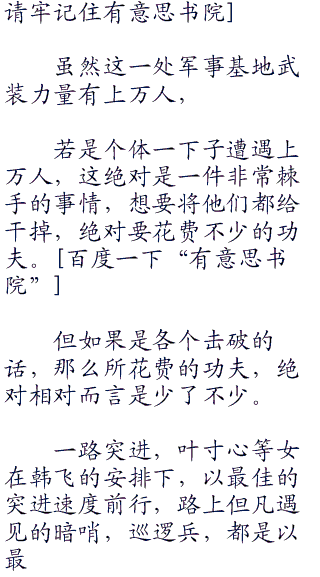 请牢记住有意思书院]
虽然这一处军事基地武
装力量有上万人，
若是个体一下子遭遇上
万人，这绝对是一件非常棘
手的事情，想要将他们都给
干掉，绝对要花费不少的功
夫。[百度一下“有意思书
院”]
但如果是各个击破的
话，那么所花费的功夫，绝
对相对而言是少了不少。
一路突进，叶寸心等女
在韩飞的安排下，以最佳的
突进速度前行，路上但凡遇
见的暗哨，巡逻兵，都是以
最